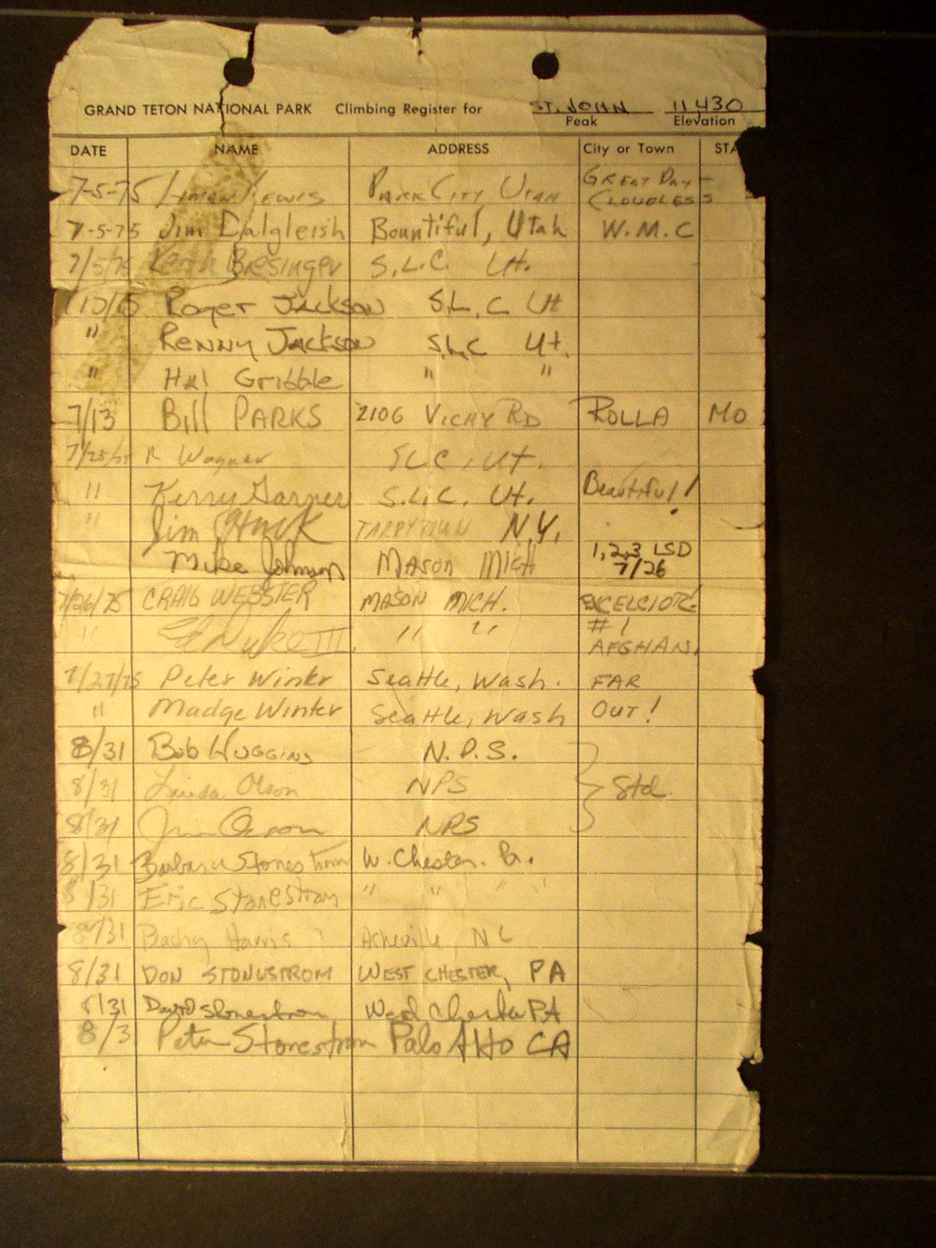 GRAND TETON NATIONAL PARK Climbing Register for ST. JOHN 11,430
Peak Elevation
DATE NAME ADDRESS City or Town STA
7-5-75 Lewis PARK CITY UTAH GREAT DAY - CLOUDLESS
7-5-75 Jim Dalgleish Bountiful, Utah W.M.C
7/5/75 Keith Biesinger S.L.C. Ut.
Roger Jackson S.L.C Ut
" Renny Jackson S.L.C Ut.
" Hal Gribble " "
7/13 Bill PARKS 2106 VICHY RD ROLLA MO
7/25/75 R Wagner SLC, Ut.
" Kerry Garner S.L.C. Ut. Beautiful!
" Jim TARRYTOWN N.Y.
Mike Johnson MASON MICH 1,2,3 LSD 7/26
7/26/75 CRAIG WEBSTER MASON MICH. EXCELCIOR!
" Ed Duke III " " #1 AFGHAN.
7/27/75 Peter Winter Seattle, Wash. FAR
" Madge Winter Seattle, Wash OUT!
8/31 Bob HUGGINS N.P.S.
8/31 Linda Olson NPS Std.
8/31 NPS
8/31 Barbara Stonestrom W. Chester. Pa.
8/31 Eric Stonestrom " " " "
8/31 Peachy Harris Asheville, NC
8/31 DON STONESTROM WEST CHESTER, PA
8/31 David Stonestrom West Chester PA
8/3 Peter Stonestrom Palo Alto CA